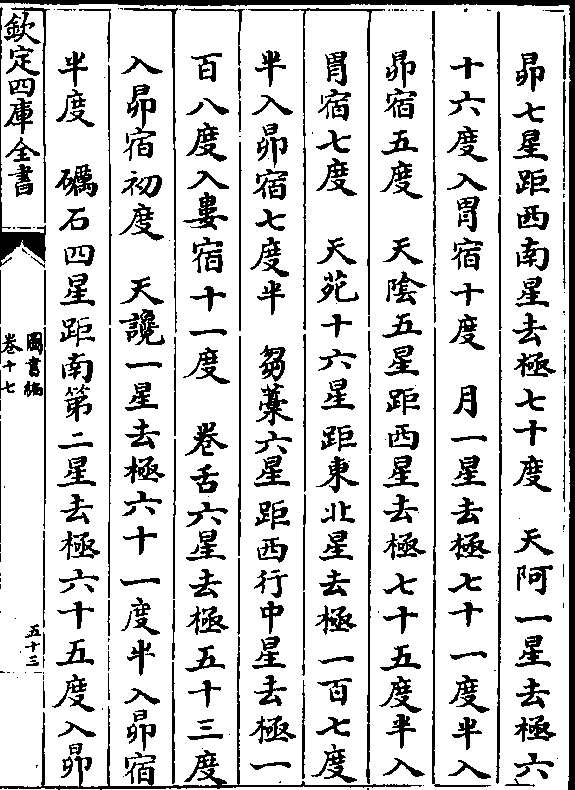 昴七星距西南星去極七十度　天阿一星去極六
十六度入胃宿十度　月一星去極七十一度半入
昴宿五度　天陰五星距西星去極七十五度半入
胃宿七度　天苑十六星距東北星去極一百七度
半入昴宿七度半　芻藁六星距西行中星去極一
百八度入婁宿十一度　卷舌六星去極五十三度
入昴宿初度　天讒一星去極六十一度半入昴宿
半度　礪石四星距南第二星去極六十五度入昴
欽定四庫全書
圖書編
卷十七
五十三